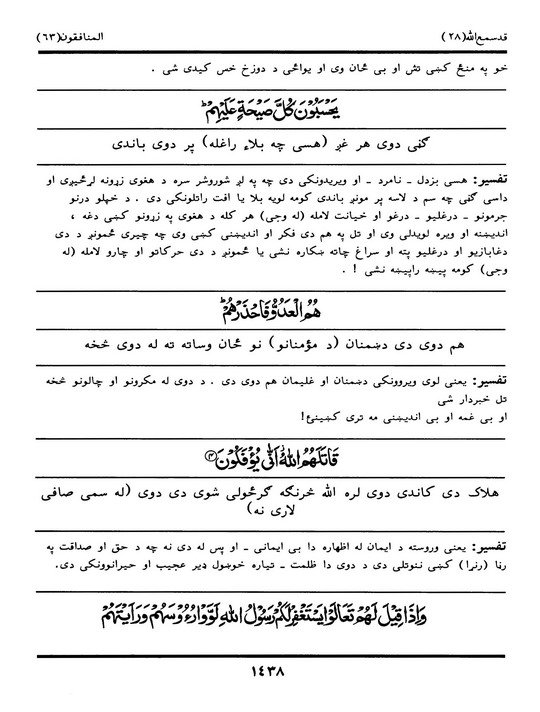 قدسمع الله (٢٨) المنافقون (٦٣)
خو په منځ کښی تش او بی ځان وی او یواځی د دوزخ خس کیدی شی .
يَحْسَبُوْنَ كُلَّ صَيْحَةٍ عَلَيْهِمْ ؕ
ګڼی دوی هر غږ (هسی چه بلاء راغله) پر دوی باندی
تفسیر: هسی بزدل ـ نامرد ـ او ویریدونکی دی چه په لږ شوروشر سره د هغوی زړونه لړځیږی او
داسی ګڼی چه سم د لاسه پر مونږ باندی کومه لویه بلا یا افت راتلونکی دی . د خپلو درنو
جرمونو ـ درغلیو ـ درغو او خیانت لامله (له وجی) هر کله د هغوی په زړونو کښی دغه ،
اندیښنه او ویره لویدلی وی او تل په هم دی فکر او اندیښنی کښی وی چه چیری ځمونږ د دی
دغابازیو او درغلیو پته او سراغ چاته ښکاره نشی یا ځمونږ د دی حرکاتو او چارو لامله (له
وجی) کومه پیښه راپیښه نشی ! .
هُمُ الْعَدُوُّ فَاحْذَرْهُمْ ؕ
هم دوی دی دښمنان (د مؤمنانو) نو ځان وساته ته له دوی څخه
تفسیر: یعنی لوی ویروونکی دښمنان او غلیمان هم دوی دی . د دوی له مکرونو او چالونو څخه
تل خبردار شی
او بی غمه او بی اندیښنی مه تری کښینئ!
قَاتَلَهُمُ اللهُ اَنّٰى يُؤْفَكُوْنَ ۝۴
هلاک دی کاندی دوی لره الله څرنګه ګرځولی شوی دی دوی (له سمی صافی
لاری نه)
تفسیر: یعنی وروسته د ایمان له اظهاره دا بی ایمانی ـ او پس له دی نه چه د حق او صداقت په
رڼا (رنرا) کښی ننوتلی دی د دوی دا ظلمت ـ تیاره خوښول ډیر عجیب او حیرانوونکی دی.
وَاِذَا قِيْلَ لَهُمْ تَعَالَوْا يَسْتَغْفِرْ لَكُمْ رَسُوْلُ اللهِ لَوَّوْا رُءُوْسَهُمْ وَرَاَيْتَهُمْ
١٤٣٨